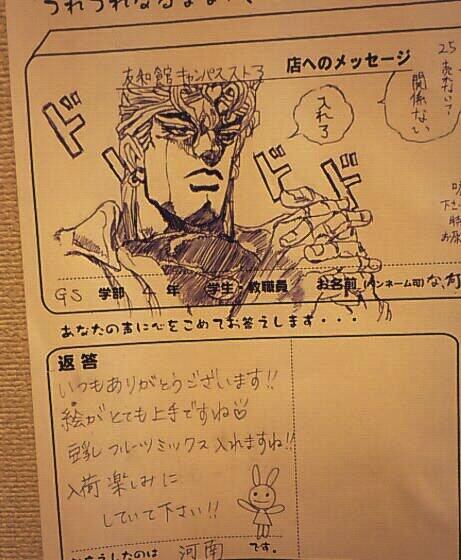 店へのメッセージ
友和館キャンパスストア
入れろ
関係ない
ド
ド
ド
GS 学部 年 学生・教職員 お名前(ペンネーム可)
あなたの声に心をこめてお答えします・・・
返答
いつもありがとうございます!!
絵がとても上手ですね♡
豆乳フルーツミックス入れますね!!
入荷楽しみに
していて下さい!!
河南 です。